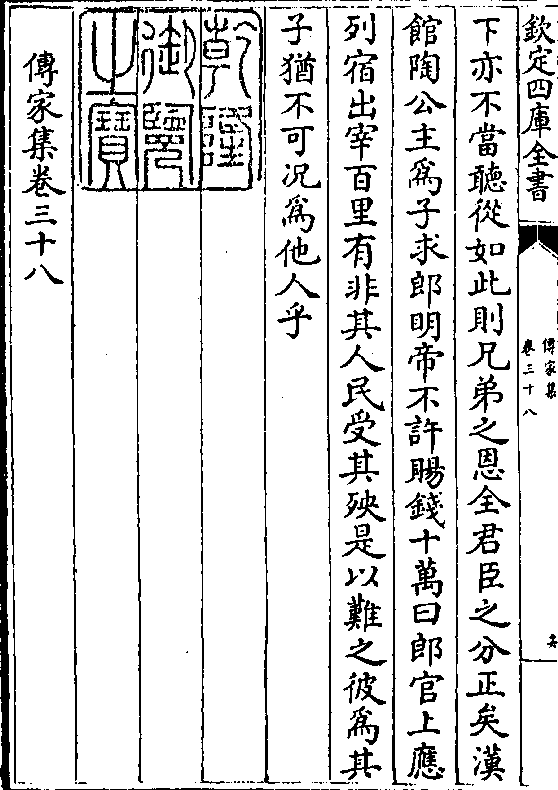 欽定四庫全書
傳家集
卷三十八
下亦不當聽從如此則兄弟之恩全君臣之分正矣漢
館陶公主為子求郎明帝不許賜錢十萬曰郎官上應
列宿出宰百里有非其人民受其殃是以難之彼為其
子猶不可况為他人乎
乾隆
御覽
之寶
傳家集卷三十八